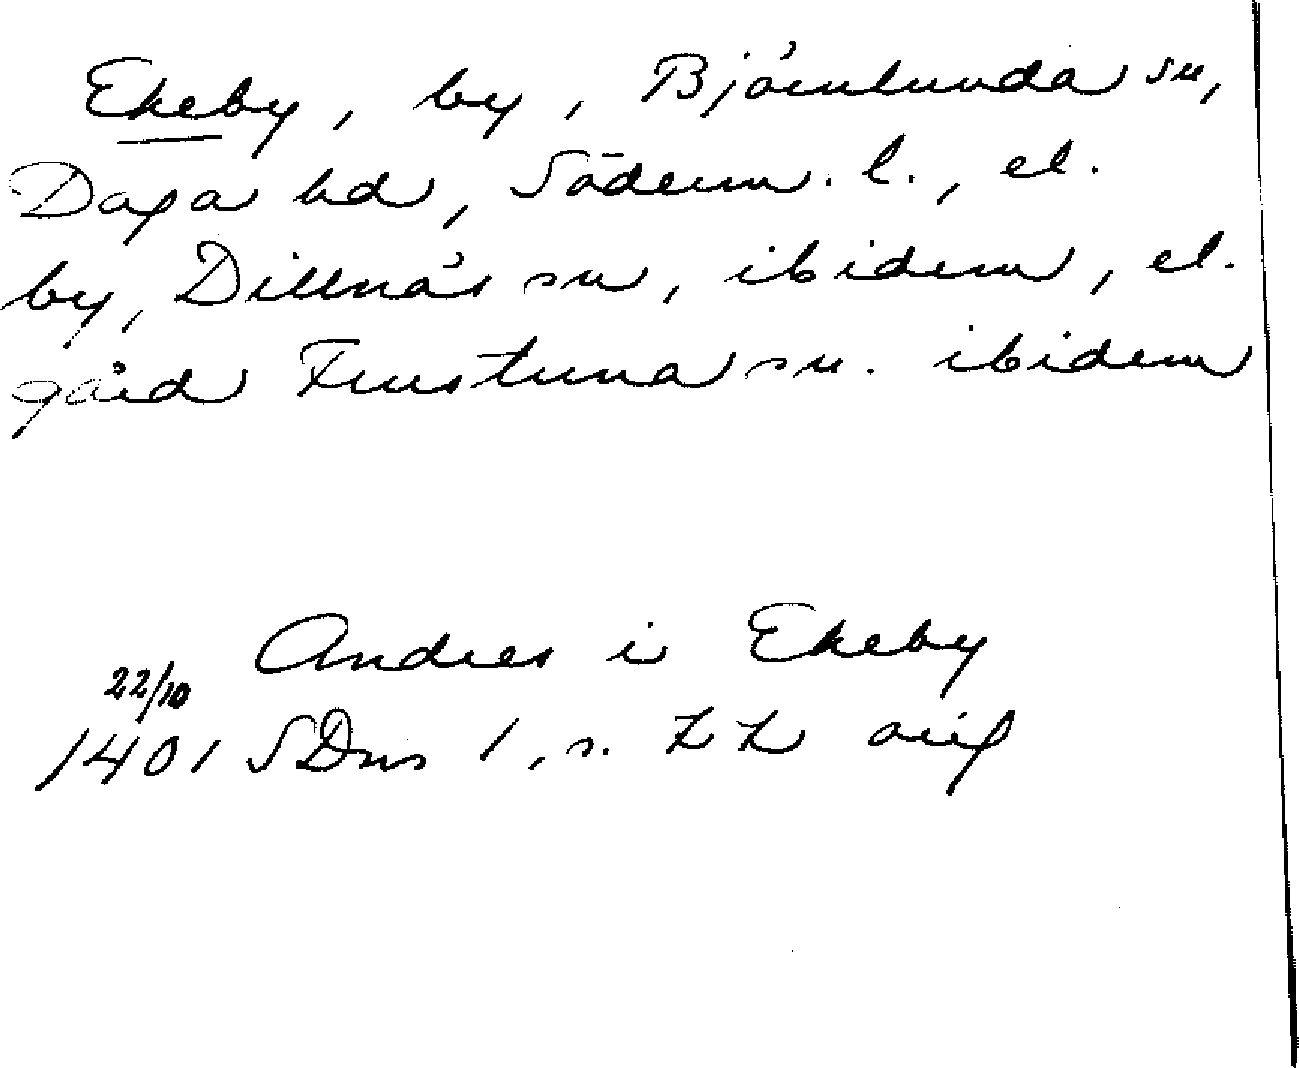 Ekeby, by, Björnlunda sn,
Daga hd, Söderm. l., el.
by, Dillnäs sn, ibidem, el.
gård Frustuna sn. ibidem
Andres i Ekeby
22/10
1401 SDns 1, s. 22 orig